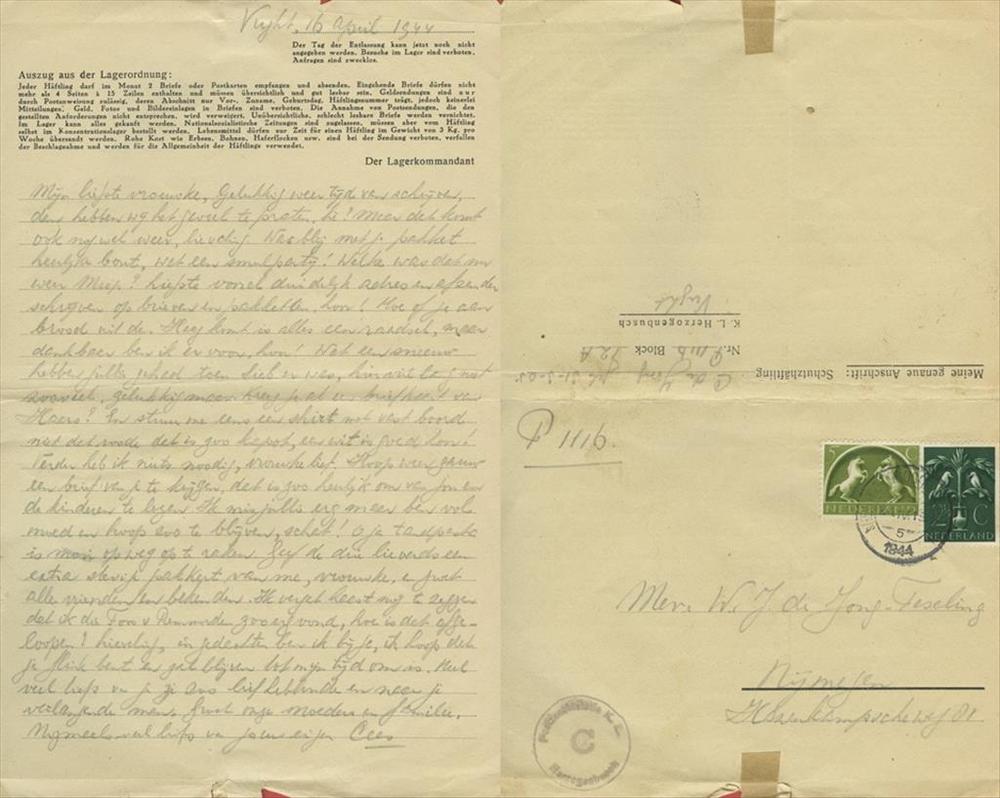 Vught, 16 April 1944
Der Tag der Entlassung kann jetzt noch nicht
angegeben werden. Besuche im Lager sind verboten.
Anfragen sind zwecklos.
Auszug aus der Lagerordnung:
Jeder Häftling darf im Monat 2 Briefe oder Postkarten empfangen und absenden. Eingehende Briefe dürfen nicht
mehr als 4 Seiten à 15 Zeilen enthalten und müssen übersichtlich und gut lesbar sein. Geldsendungen sind nur
durch Postanweisung zulässig, deren Abschnitt nur Vor-, Zuname, Geburtstag, Häftlingsnummer trägt, jedoch keinerlei
Mitteilungen. Geld, Fotos und Bildereinlagen in Briefen sind verboten. Die Annahme von Postsendungen, die den
gestellten Anforderungen nicht entsprechen, wird verweigert. Unübersichtliche, schlecht lesbare Briefe werden vernichtet.
Im Lager kann alles gekauft werden. Nationalsozialistische Zeitungen sind zugelassen, müssen aber vom Häftling
selbst im Konzentrationslager bestellt werden. Lebensmittel dürfen zur Zeit für einen Häftling im Gewicht von 3 Kg. pro
Woche übersandt werden. Rohe Kost wie Erbsen, Bohnen, Haferflocken usw. sind bei der Sendung verboten, verfallen
der Beschlagnahme und werden für die Allgemeinheit der Häftlinge verwendet.
Der Lagerkommandant
Mijn liefste vrouwke, Gelukkig weer tijd van schrijven,
dan hebben wij het gevoel te praten, hè! Maar dat komt
ook nog wel weer, lieveling. Was blij met je pakket
heerlijke bout, wat een smulpartij! Welke was dat nu
weer Miep? Liefste vooral duidelijk adres en afzender
schrijven op brieven en pakketten, hoor! Hoe of je aan
brood uit den Haag komt is alles een raadsel, maar
dankbaar ben ik er voor, hoor! Wat een sneeuw
hebben jullie gehad toen Sieb er was, hier viel lang niet
zooveel, gelukkig maar. Kreeg je al een briefkaart van
Kees? En stuur me eens een shirt met vast boord
niet dat roode dat is zoo kapot, een wit is goed hoor!
Verder heb ik niets noodig, vrouwke lief. Hoop weer gauw
een brief van je te krijgen, dat is zoo heerlijk om van jou en
de kinderen te lezen. Ik mis jullie erg maar ben vol
moed en hoop zoo te blijven, schat! O ja tandpasta
is mooi op weg op te raken. Geef de drie lieverds een
extra stevig pakkert van me, vrouwke, en groet
alle vrienden en bekenden. Ik vergat haast nog te zeggen
dat ik die Foor v zoo erg vond, hoe is dat afge-
loopen? Lieveling, in gedachten ben ik bij je, ik hoop dat
je flink bent en zult blijven tot mijn tijd om is. Heel
veel liefs van je zoo liefhebbende en naar je
verlangende man. Groet onze moeders en familie.
Nogmaals veel liefs van jouw eigen Cees
Meine genaue Anschrift:
Schutzhäftling C de Jong
Nr. P 1116 Block 12A
K. L. Herzogenbusch
Vught
P 1116.
5 C
NEDERLAND
2½ C
NEDERLAND
1944
Mevr W. J. de Jong-Teseling
Nijmegen
Hazenkampscheweg 81
Postzensurstelle K. L.
C
Herzogenbusch